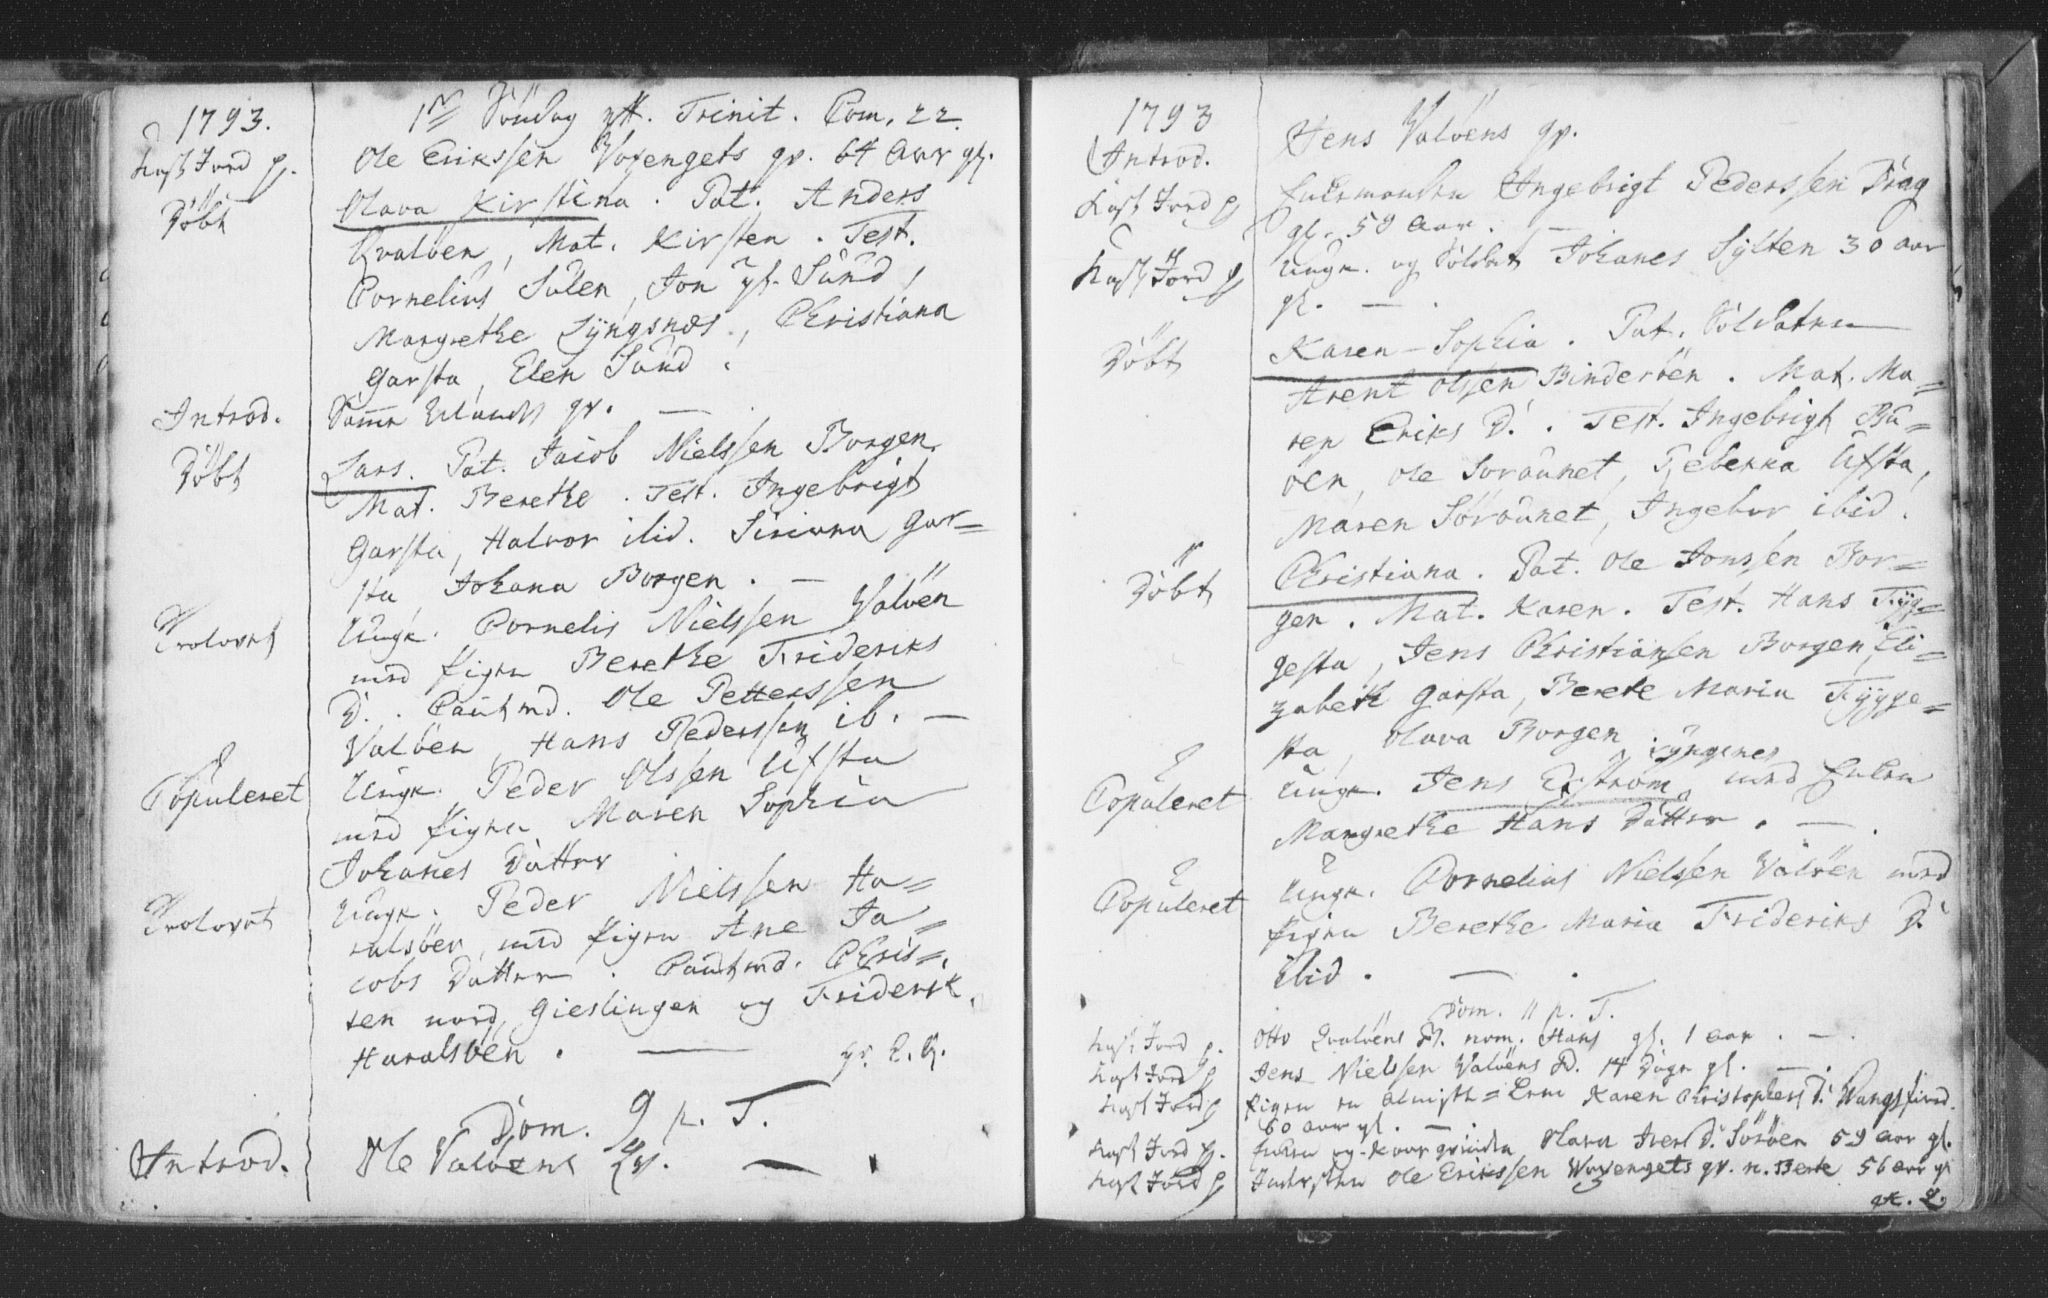 1793.
1ste Söndag eft. Trinit. Com. 22.
Kast Jord p. Ole Erikssen Woxengets qv. 64 Aar gl.
Döbt Olava Kirstina. Pat. Anders
Qvalöen, Mat. Kirsten. Test.
Cornelius Sulen, Jon ys. Sund,
Margrethe Lÿngsnæs, Christiana
Garsta, Elen Sund.
Introd. Samme qv. —
Döbt Lars. Pat. Jacob Nielssen Borgen.
Mat. Berethe. Test. Ingebrigt
Garsta, Halvor ibid. Siriana Gar=
sta, Johana Borgen. —
Trolovet Ungk. Cornelis Nielssen Valöen
med Pigen Berethe Frideriks
D. Cautmd. Ole Petterssen
Valöen, Hans Pederssen ib. —
Copuleret Ungk. Peder Olssen Ufsta
med Pigen Maren Sophia
Johanes Datter
Trolovet Ungk. Peder Nielssen Ha=
ralsöen, med Pigen Ane Ja=
cobs Datter. Cautmd. Chris=
ten nord Gieslingen og Friderik
Haralsöen. —
Dom. 9 p. T.
Introd. Ole Valöens Qv. —
1793
Introd. Jens Valöens qv.
Kast Jord p Enkemanden Ingebrigt Pederssen Drag
gl. 59 Aar. —
Kast Jord p Ungk. og Soldat Johanes Sylten 30 aar
gl. —
Döbt Karen-Sophia. Pat. Soldaten
Arent Olssen Binderöen. Mat. Ma=
ren Eriks D. Test. Ingebrigt Bu=
öen, Ole Soraunet, Rebekka Ufsta,
Maren Söraunet, Ingebor ibid.
Döbt Christiana. Pat. Ole Jonssen Bor=
gen. Mat. Karen. Test. Hans Tÿg=
gesta, Jens Christianssen Borgen, Eli=
zabeth Garsta, Berete Maria Tÿgge=
sta, Olava Borgen.
Lÿngsnes
Copuleret Ungk. Jens Exstrøm med Enken
Margrethe Hans Datter. —
Copuleret Ungk. Cornelius Nielssen Valöen med
Pigen Berethe Maria Frideriks D.
ibid. —
Dom. 11 p. T.
Kast Jord p. Otto Qvalöens B. nom. Hans gl. 1 aar. —
Kast Jord p Jens Nielssen Valöens B. 14 Dage gl. —
Kast Jord p Pigen en Almisse=Lem Karen Christophers D. Vangsfiord
60 aar gl. —
Kast Jord p. Enken og Olava Iver D. Söröen 59 aar gl.
Kast Jord p Ole Erikssen Woxengets qv. n. Berete 56 aar gl